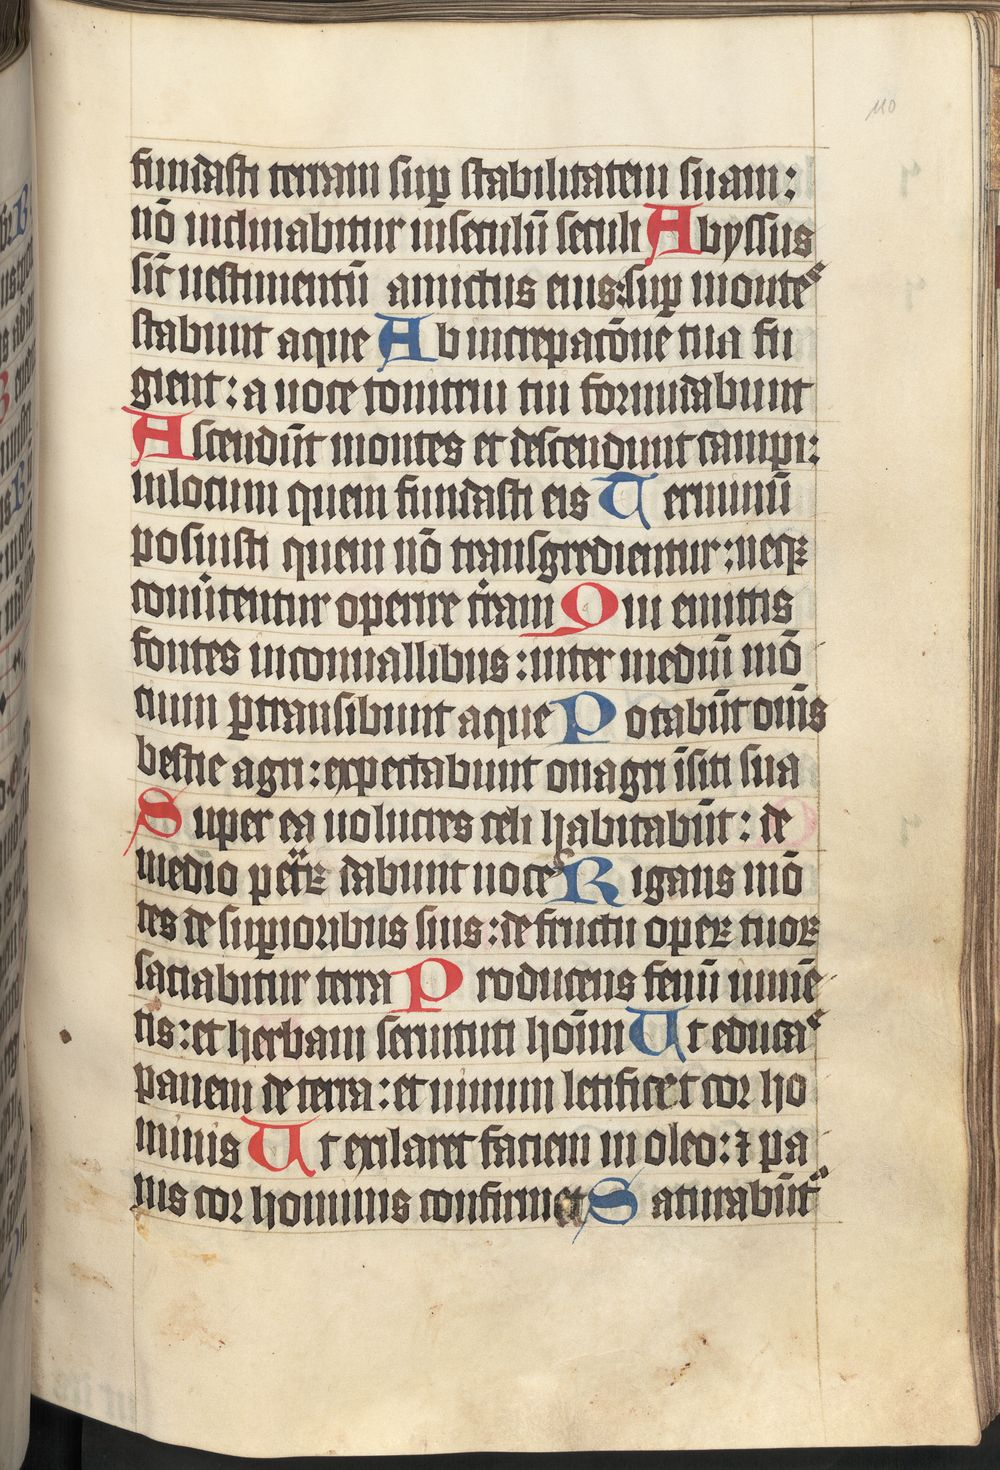 110
fundasti terram sup̱ stabilitatem suam:
nō inclinabitur inseculū seculi Abyssus
sic̄ uestimentū amictus eius:sup̱ monte⁵
stabunt aque Ab increpac̄ōnē tua fu
gient: a uoce tonitrui tui formidabunt
Ascendūt montes et descendunt campi:
inlocum quem fundasti eis Terminū
posuisti quem nō transgredientur:neqꝫ
conu̇tentur operire tr̄am Qui emittis
fontes inconuallibus:inter mediū mō
cium ꝑtransibunt aque Potabūt om̄s
bestie agri:expectabunt onagri ī siti sua
Super ea uolucres celi habitabūt: de
medio pet̄ꝝ dabunt uoce⁵ Rigans mō
tes de sup̱ioribus suis:de fructu opeꝝ tuoꝝ
saciabitur terra Producens fenū iumē
tis:et herbam seruituti hoīm Ut educa⁵
panem de terra:et uinum letificet cor ho
minis Ut exilaret faciem in oleo:⁊ pa
nis cor hominis confirmet Saturabūt᷑